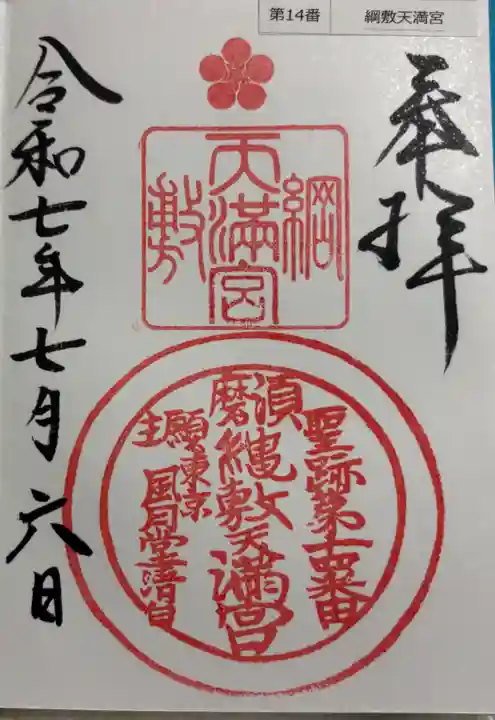 第14番 綱敷天満宮
奉拝
綱敷天満宮
聖跡第十四番
須磨
縄敷天満宮
願主
東京
風月堂清白
令和七年七月六日